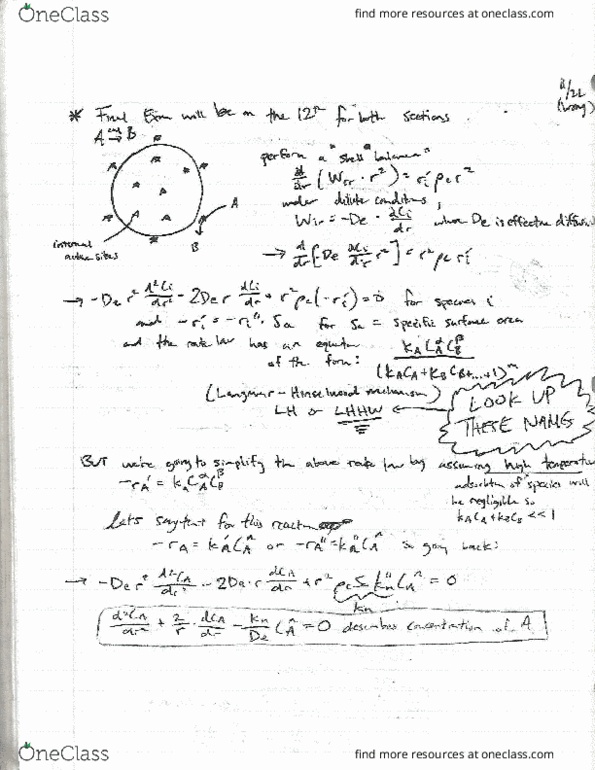 OneClass
find more resources at oneclass.com
(wrong)
* Final Exam will be on the 12th for both sections.
A cat→ B
perform a "shell" balance
d/dr (Wir · r²) = ri' ρc r²
under dilute conditions,
Wir = -De · dCi/dr where De is effective
A
B
internal
active sites
→ d/dr [-De dCi/dr r²] = r² ρc ri'
→ -De r² d²Ci/dr² - 2De r dCi/dr + r² ρc (-ri') = 0 for species i
and -ri' = -ri'' · Sa for Sa = specific surface area
and the rate law has an equation
of the form: kA CA^α CB^β / (KA CA + KB CB + ... + 1)^m
(Langmuir - Hinselwood mechanism)
LH or LHHW ←
LOOK UP
THESE NAMES
BUT we're going to simplify the above rate law by assuming high temperature
-rA' = ka CA^α CB^β
adsorbtion of species will
be negligible so
KA CA + KB CB << 1
Let's say that for this reaction
-rA = kA' CA^n or -rA'' = kA'' CA^n so going back:
→ -De r² d²CA/dr² - 2De · r dCA/dr + r² ρc Sa kn'' CA^n = 0
kn
d²CA/dr² + 2/r · dCA/dr - kn/De CA^n = 0 describes concentration of A
OneClass
find more resources at oneclass.com